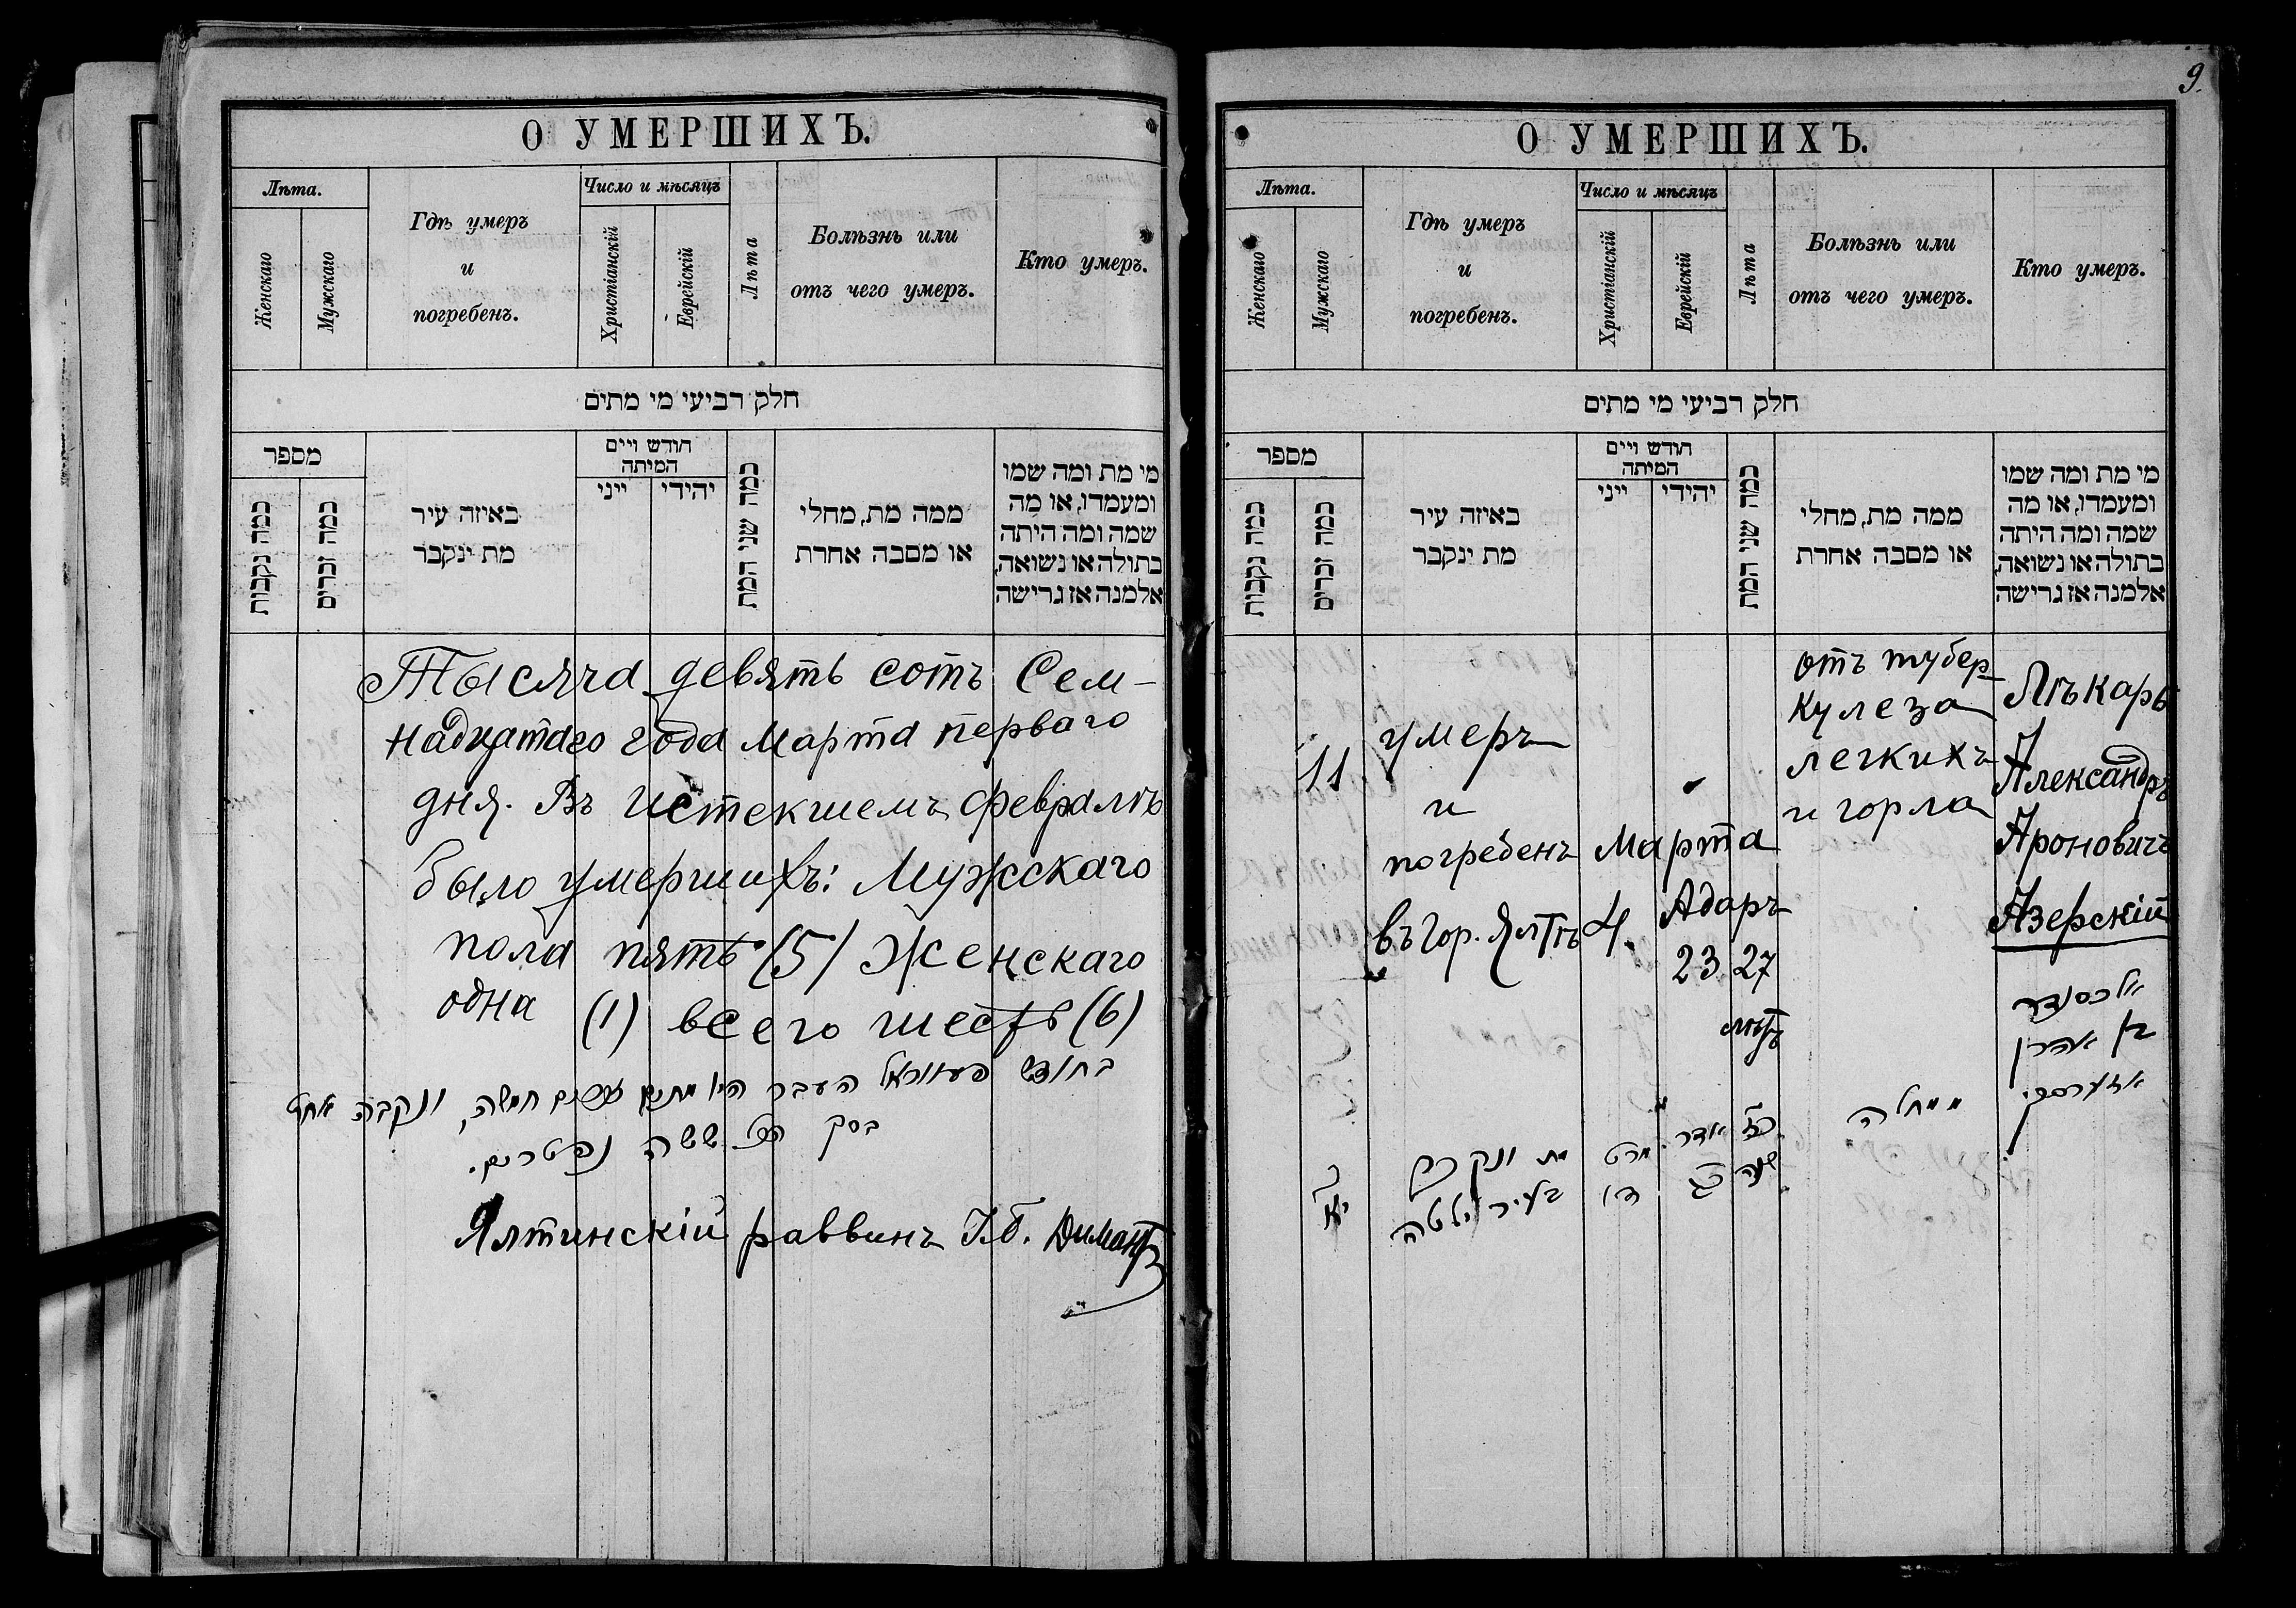 О УМЕРШИХЪ.
Лѣта.
Женскаго
Мужскаго
Гдѣ умеръ
и
погребенъ.
Число и мѣсяцъ
Христіанскій
Еврейскій
Лѣта
Болѣзнь или
отъ чего умеръ.
Кто умеръ.
חלק רביעי מי מתים
מספר
כמה נקבות
כמה זכרים
באיזה עיר
מת ינקבר
חודש ויים
המיתה
ייני
יהידי
כמה שני המת
ממה מת, מחלי
או מסבה אחרת
מי מת ומה שמו
ומעמדו, או מה
שמה ומה היתה
בתולה או נשואה,
אלמנה אז גרישה
Тысяча девять сотъ Сем-
надцатаго года Марта перваго
дня. Въ истекшемъ Февралѣ
было умершихъ: Мужскаго
пола пять (5) Женскаго
одна (1) всего шесть (6)
בחודש פעווראל העבר היו מתים זכרים חמשה, ונקבה אחת
בסך הכל ששה נפטרים.
Ялтинскій раввинъ І.Б. Димантъ
9.
О УМЕРШИХЪ.
Лѣта.
Женскаго
Мужскаго
Гдѣ умеръ
и
погребенъ.
Число и мѣсяцъ
Христіанскій
Еврейскій
Лѣта
Болѣзнь или
отъ чего умеръ.
Кто умеръ.
חלק רביעי מי מתים
מספר
כמה נקבות
כמה זכרים
באיזה עיר
מת ינקבר
חודש ויים
המיתה
ייני
יהידי
כמה שני המת
ממה מת, מחלי
או מסבה אחרת
מי מת ומה שמו
ומעמדו, או מה
שמה ומה היתה
בתולה או נשואה,
אלמנה אז גרישה
11
умеръ
и
погребенъ
въ гор. Ялтѣ
Марта
4.
Адаръ
23
27
лѣтъ
отъ тубер-
кулеза
легкихъ
и горла
Лѣкарь
Александръ
Ароновичъ
Азерскій
אלכסנדר
בן אהרן
אזערסקי
ממחלה
כז
שנה
אדר
כג
מרט
ד'
מת ונקבר
בעיר יאלטה
יא